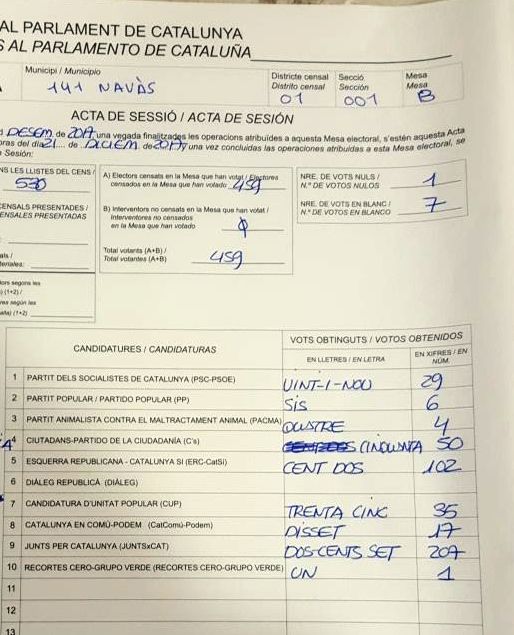 AL PARLAMENT DE CATALUNYA
S AL PARLAMENTO DE CATALUÑA
Municipi / Municipio
141 NAVÀS
Districte censal
Distrito censal
01
Secció
Sección
001
Mesa
Mesa
B
ACTA DE SESSIÓ / ACTA DE SESIÓN
DESEM. de 2017 una vegada finalitzades les operacions atribuïdes a aquesta Mesa electoral, s'estén aquesta Acta
oras del día 21 de DICIEM. de 2017 y una vez concluidas las operaciones atribuidas a esta Mesa electoral, se
Sesión:
NS LES LLISTES DEL CENS /
530
CENSALS PRESENTADES /
ENSALES PRESENTADAS
als /
teriales:
lors segons les
) (1+2) /
res según las
ata) (1+2)
A) Electors censats en la Mesa que han votat / Electores
censados en la Mesa que han votado 459
B) Interventors no censats en la Mesa que han votat /
Interventores no censados
en la Mesa que han votado
Total votants (A+B) /
Total votantes (A+B) 459
NRE. DE VOTS NULS /
N.º DE VOTOS NULOS 1
NRE. DE VOTS EN BLANC /
N.º DE VOTOS EN BLANCO 7
CANDIDATURES / CANDIDATURAS
VOTS OBTINGUTS / VOTOS OBTENIDOS
EN LLETRES / EN LETRA
EN XIFRES / EN
NÚM.
1 PARTIT DELS SOCIALISTES DE CATALUNYA (PSC-PSOE) VINT-I-NOU 29
2 PARTIT POPULAR / PARTIDO POPULAR (PP) SIS 6
3 PARTIT ANIMALISTA CONTRA EL MALTRACTAMENT ANIMAL (PACMA) QUATRE 4
4 CIUTADANS-PARTIDO DE LA CIUDADANÍA (C's) CINQUANTA 50
5 ESQUERRA REPUBLICANA - CATALUNYA SÍ (ERC-CatSí) CENT DOS 102
6 DIÀLEG REPUBLICÀ (DIÀLEG)
7 CANDIDATURA D'UNITAT POPULAR (CUP) TRENTA CINC 35
8 CATALUNYA EN COMÚ-PODEM (CatComú-Podem) DISSET 17
9 JUNTS PER CATALUNYA (JUNTSxCAT) DOS-CENTS SET 207
10 RECORTES CERO-GRUPO VERDE (RECORTES CERO-GRUPO VERDE) UN 1
11
12
13